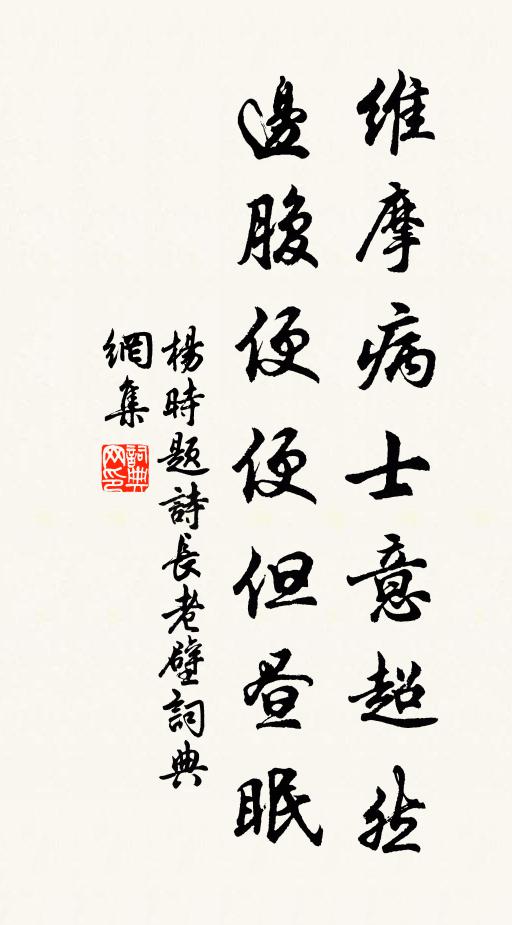 維摩病士意超然
邊腹便便但昼眠
楊時題詩長老壁詞典
網集
詞典
网印